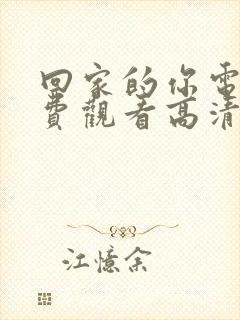 回家的你電
費觀看高清
江憶余